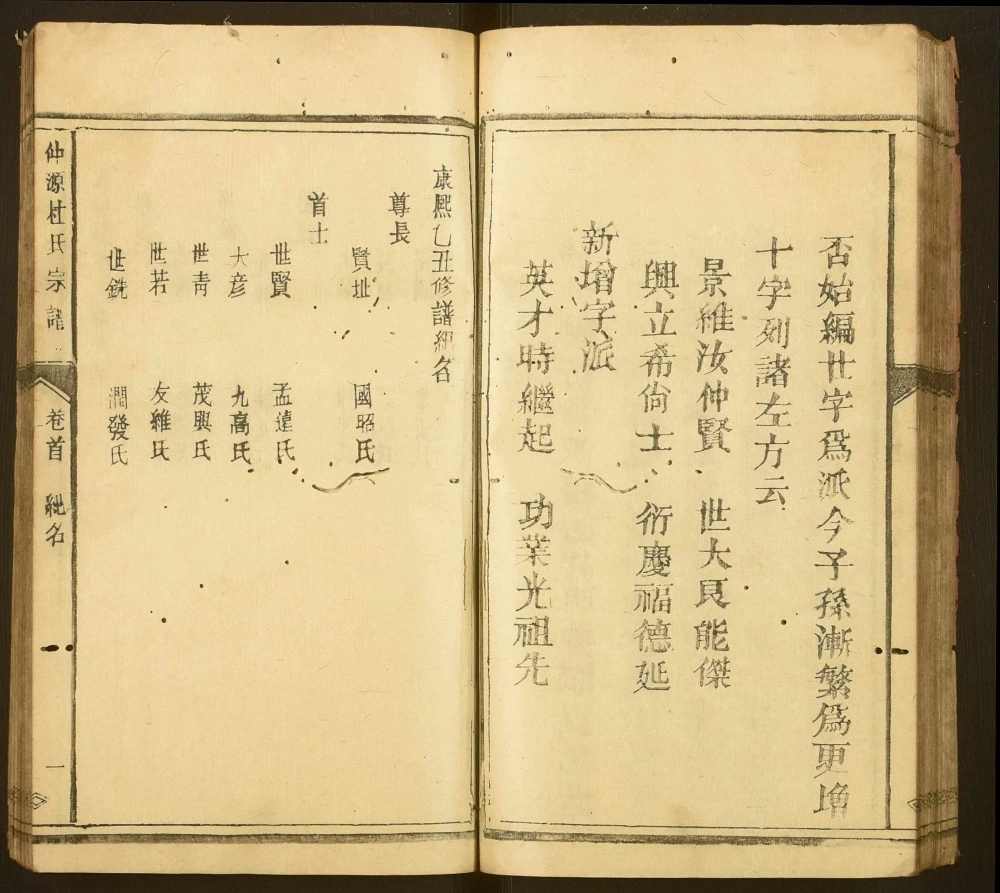 否始編廿字爲派今子孫漸繁爲更增
十字列諸左方云
景維汝仲賢 世大良能傑
興立希尙士 衍慶福德延
新增字派
英才時繼起 功業光祖先
康熙乙丑修譜紕名
尊長
賢址 國昭氏
首士
世賢 孟遠氏
大彦 九高氏
世靑 茂興氏
世若 友維氏
世銑 潤發氏
仲源杜氏宗譜 卷首 紕名 一